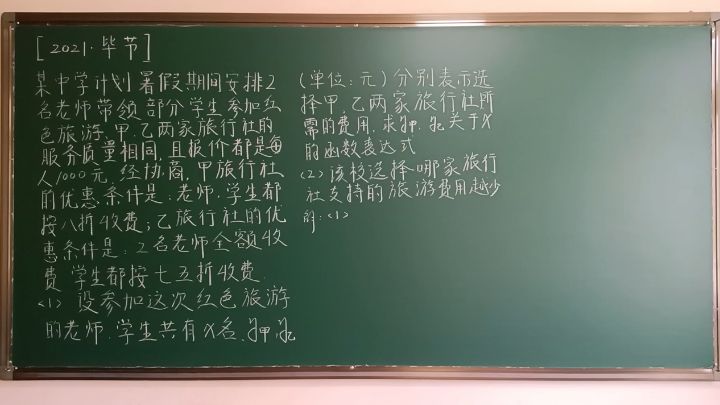 [2021·毕节]
某中学计划暑假期间安排2
名老师带领部分学生参加红
色旅游.甲、乙两家旅行社的
服务质量相同,且报价都是每
人1000元,经协商,甲旅行社
的优惠条件是:老师、学生都
按八折收费;乙旅行社的优
惠条件是:2名老师全额收
费 学生都按七五折收费.
<1> 设参加这次红色旅游
的老师.学生共有x名,y甲,y乙
(单位:元)分别表示选
择甲、乙两家旅行社所
需的费用,求y甲,y乙关于x
的函数表达式
<2>该校选择哪家旅行
社支持的旅游费用越少
:<1>